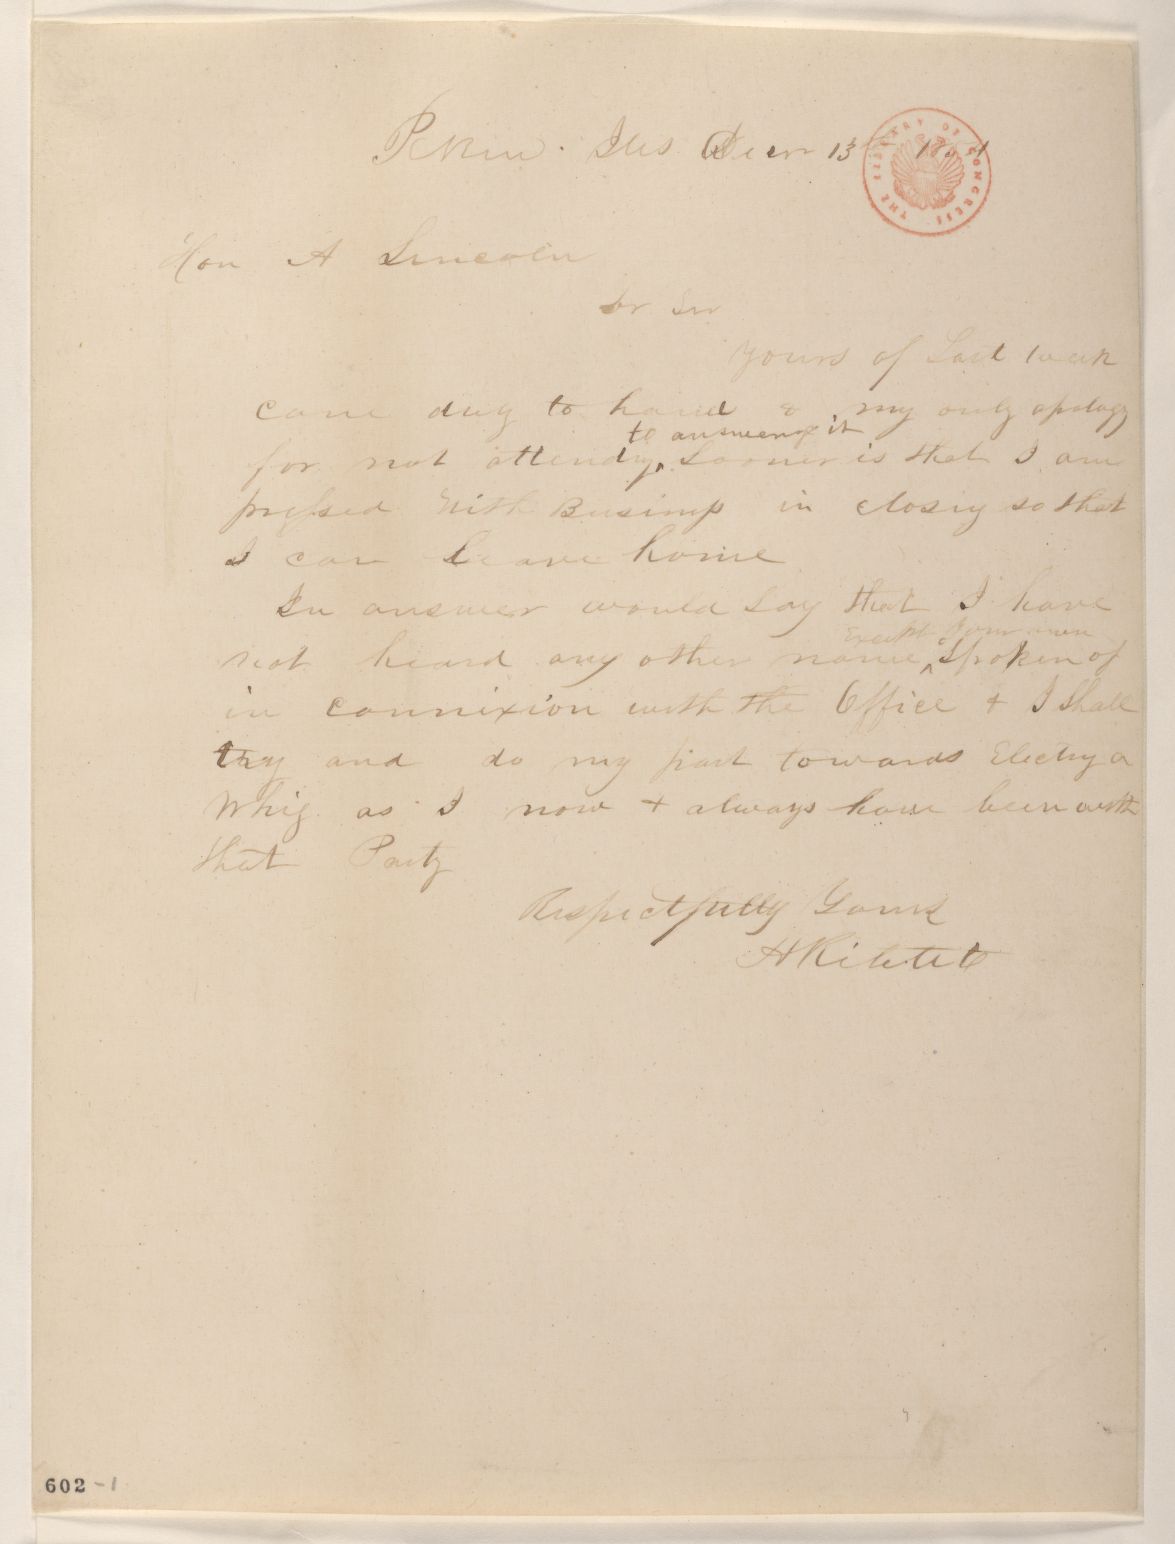 Pekin Ills Decr 13th 1854
THE LIBRARY OF CONGRESS
Hon A Lincoln
Dr Sir
Yours of Last week
came duly to hand & my only apology
to answering it
for not attending ^ Sooner is that I am
pressed with Business in closing so that
I can Leave home
In answer would Say that I have
Except Your own
not heard any other name ^ Spoken of
in connixion with the Office & I Shall
try and do my part towards Electing a
Whig as I now & always have been with
that Party
Respectfully Yours
602-1